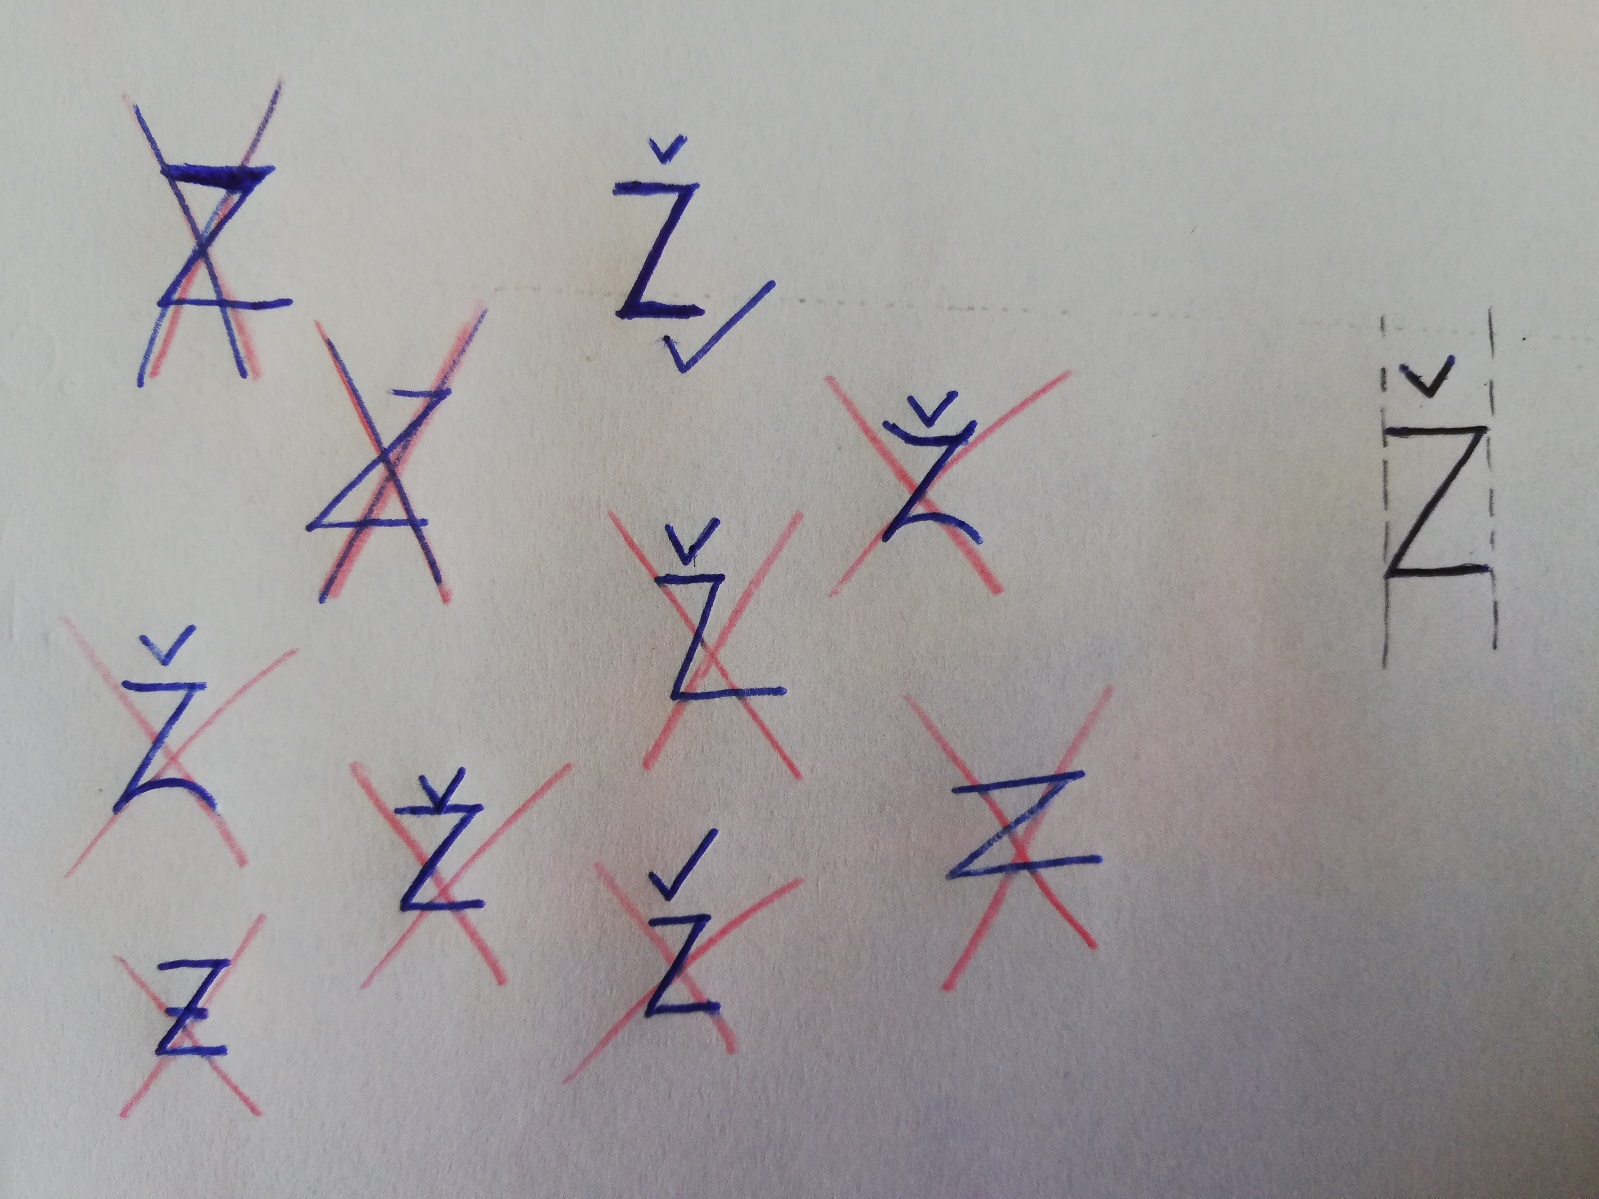 Z Ž
Z Ž Ž
Ž
Ž
Ž Z
Ž
Z